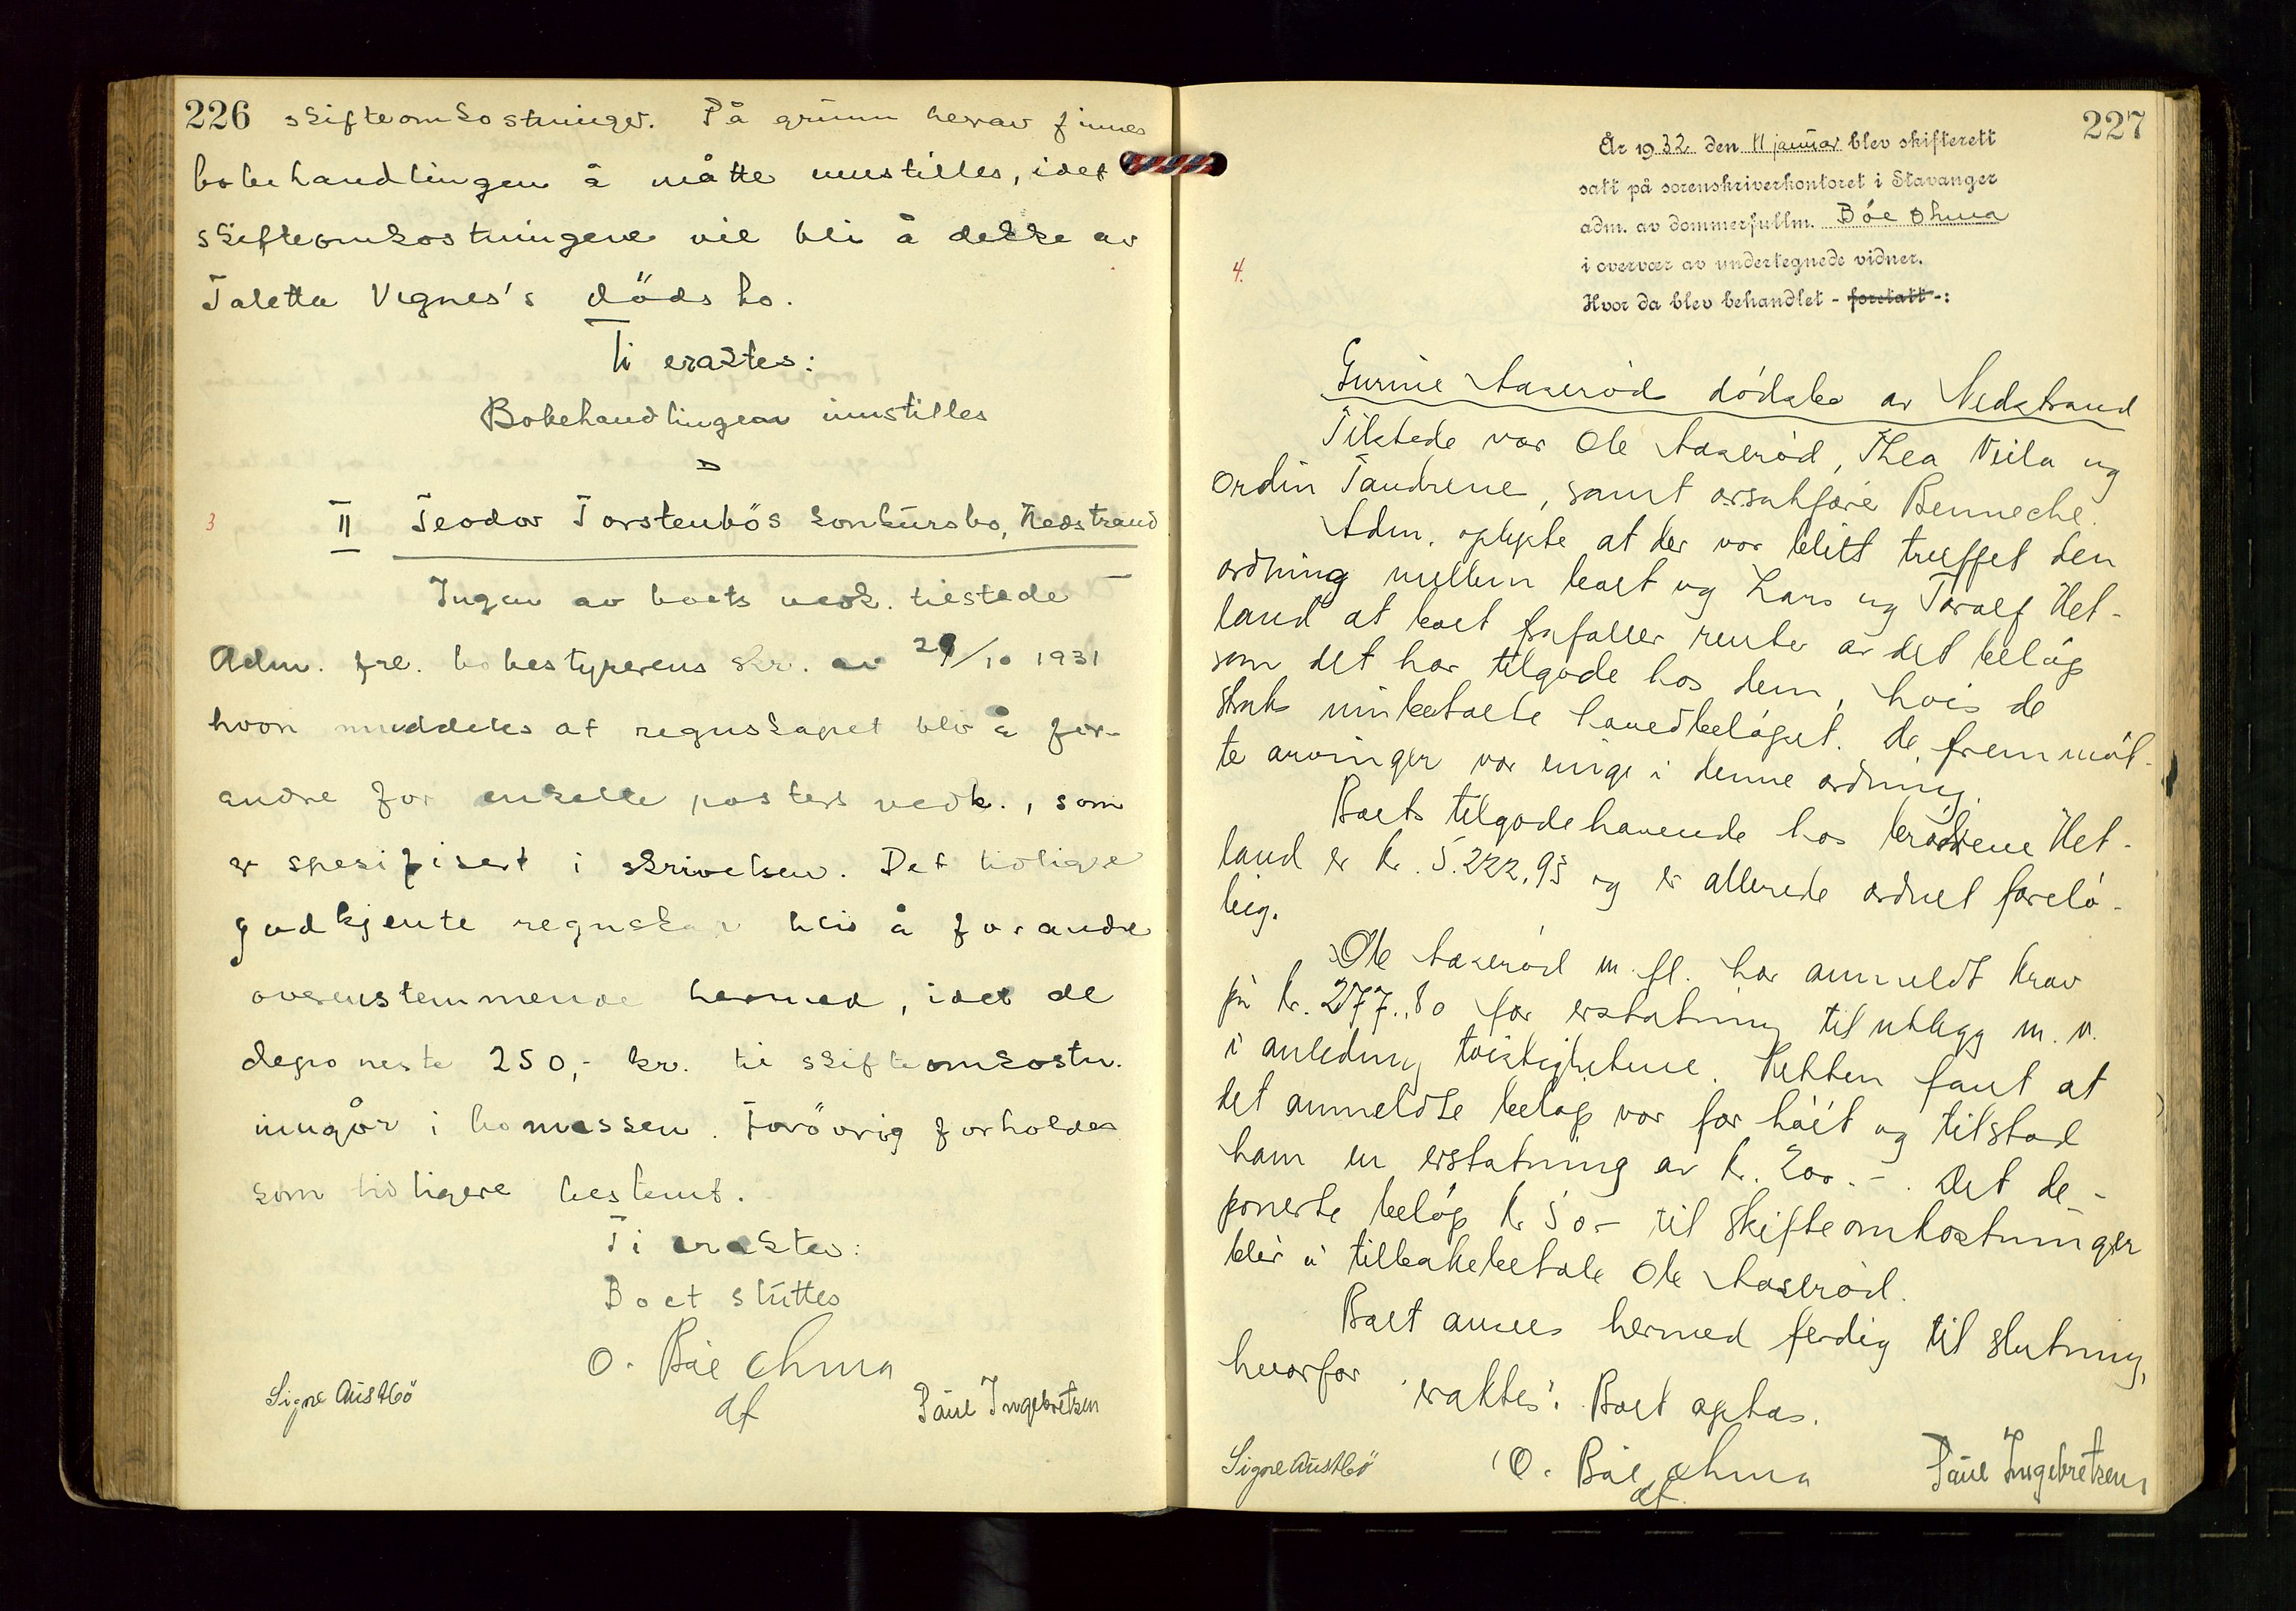 226 skifteomkostninger. På grunn herav finnes
bobehandlingen å måtte innstilles, idet
skifteomkostningene vil bli å dekke av
Taletta Vignes's dödsbo.
Ti eraktes:
Bobehandlingen innstilles
3 II Teodor Torstenbös konkursbo, Nedstrand
Ingen av boets vedk. tilstede
Adm. frl. bobestyrerens skr. av 29/10 1931
hvori meddeles at regnskapet blir å for-
andre for enkelte posters vedk., som
er spesifisert i skrivelsen. Det tidligere
godkjente regnskap blir å forandre
overenstemmende hermed, idet de
deponerte 250,- kr. til skifteomkostn.
inngår i bomassen. Forövrig forholdes
som tidligere bestemt.
Ti eraktes:
Boet sluttes
O. Böe Ohma
df
Signe Austbö
Paul Ingebretsen
227
År 1932 den 11 januar blev skifterett
satt på sorenskriverkontoret i Stavanger
adm. av dommerfullm. Böe Ohma
i overvær av undertegnede vidner.
4.
Hvor da blev behandlet - foretatt -:
Gurine Aaserød dødsbo av Nedstrand
Tilstede var Ole Aaserød, Thea Viila og
Ordin Tandrene, samt orsakfører Benneche.
Adm. oplyste at der var blitt truffet den
ordning mellem boet og Lars og Toralf Het-
land at boet frafaller renter av det beløp
som det har tilgode hos dem, hvis de
straks innbetalte hovedbeløpet. De fremmøt-
te arvinger var enige i denne ordning.
Boets tilgodehavende hos brødrene Het-
land er kr. 5.222,95 og er allerede ordnet forelø-
big.
Ole Aaserød m. fl. har anmeldt krav
på kr. 277.80 for erstatning til utlegg m. v.
i anledning tvistighetene. Retten fant at
det anmeldte beløp var for høit og tilstod
ham en erstatning av kr. 200.-. Det de-
ponerte beløp kr 50- til skifteomkostninger
blir å tilbakebetale Ole Aaserød.
Boet ansees hermed ferdig til slutning,
hvorfor eraktes: Boet optas.
Signe Austbö
O. Böe Ohma
df.
Paul Ingebretsen